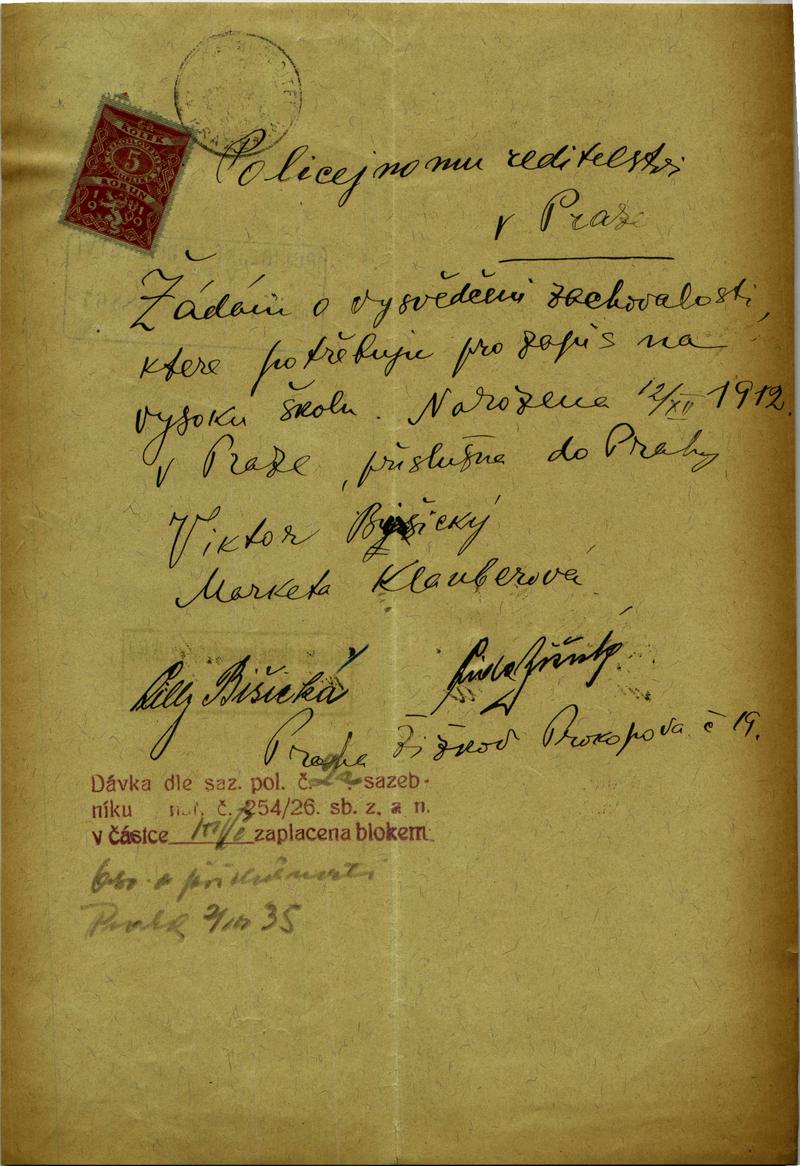 KOLEK
5
KORUN
Policejnomu reditelstvi
v Praze
Žádám o vysvědčení zachovalosti,
ktere potřebuju pro zapis na
vysoku školu. Narozena 12/XII 1912.
v Praze, příslušna do Prahy
Viktor Byšický
Marketa Klauberová
Lilly Bišická
Praha Žižkov Prokopova č 19.
Dávka dle saz. pol. č. sazeb-
níku č. 254/26. sb. z. a n.
v částce zaplacena blokem.
o příslušnosti
35